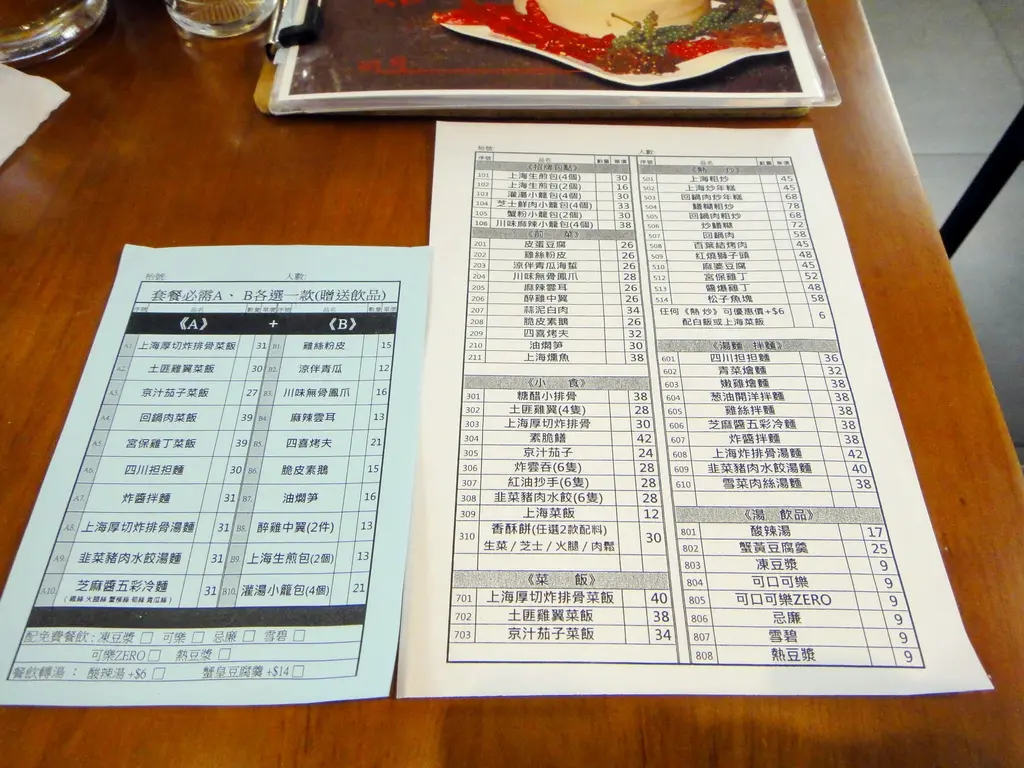 枱號:
人數:
套餐必需A、B各選一款(贈送飲品)
序號 品名 數量 單價 序號 品名 數量 單價
《A》 + 《B》
A1. 上海厚切炸排骨菜飯 31 B1. 雞絲粉皮 15
A2. 土匪雞翼菜飯 30 B2. 涼伴青瓜 12
A3. 京汁茄子菜飯 27 B3. 川味無骨鳳爪 16
A4. 回鍋肉菜飯 39 B4. 麻辣雲耳 13
A5. 宮保雞丁菜飯 39 B5. 四喜烤夫 21
A6. 四川担担麵 30 B6. 脆皮素鵝 15
A7. 炸醬拌麵 31 B7. 油燜笋 16
A8. 上海厚切炸排骨湯麵 31 B8. 醉雞中翼(2件) 13
A9. 韭菜豬肉水餃湯麵 31 B9. 上海生煎包(2個) 13
A10. 芝麻醬五彩冷麵 31 B10. 灌湯小籠包(4個) 21
(雞絲 火腿絲 蟹柳絲 筍絲 青瓜絲)
配免費餐飲: 凍豆漿 □ 可樂 □ 忌廉 □ 雪碧 □
可樂ZERO □ 熱豆漿 □
餐飲轉湯 : 酸辣湯 +$6 □ 蟹皇豆腐羹 +$14 □
枱號:
序號 品名 數量 單價
《招牌包點》
101 上海生煎包(4個) 30
102 上海生煎包(2個) 16
103 灌湯小籠包(4個) 30
104 芝士鮮肉小籠包(4個) 33
105 蟹粉小籠包(2個) 30
106 川味麻辣小籠包(4個) 38
《前 菜》
201 皮蛋豆腐 26
202 雞絲粉皮 26
203 涼伴青瓜海蜇 26
204 川味無骨鳳爪 28
205 麻辣雲耳 26
206 醉雞中翼 26
207 蒜泥白肉 34
208 脆皮素鵝 26
209 四喜烤夫 32
210 油燜笋 30
211 上海燻魚 38
《小 食》
301 糖醋小排骨 38
302 土匪雞翼(4隻) 28
303 上海厚切炸排骨 30
304 素脆鱔 42
305 京汁茄子 24
306 炸雲吞(6隻) 28
307 紅油抄手(6隻) 28
308 韭菜豬肉水餃(6隻) 28
309 上海菜飯 12
310 香酥餅(任選2款配料) 30
生菜 / 芝士 / 火腿 / 肉鬆
《菜 飯》
701 上海厚切炸排骨菜飯 40
702 土匪雞翼菜飯 38
703 京汁茄子菜飯 34
人數:
序號 品名 數量 單價
《熱 炒》
501 上海粗炒 45
502 上海炒年糕 45
503 回鍋肉炒年糕 68
504 鱔糊粗炒 78
505 回鍋肉粗炒 68
506 炒鱔糊 72
507 回鍋肉 58
508 百葉結烤肉 45
509 紅燒獅子頭 48
510 麻婆豆腐 45
512 宮保雞丁 52
513 醬爆雞丁 48
514 松子魚塊 58
任何《熱炒》可優惠價+$6 6
配白飯或上海菜飯
《湯麵 拌麵》
601 四川担担麵 36
602 青菜燴麵 32
603 嫩雞燴麵 38
604 葱油開洋拌麵 38
605 雞絲拌麵 38
606 芝麻醬五彩冷麵 38
607 炸醬拌麵 38
608 上海炸排骨湯麵 42
609 韭菜豬肉水餃湯麵 40
610 雪菜肉絲湯麵 38
《湯 飲品》
801 酸辣湯 17
802 蟹黃豆腐羹 25
803 凍豆漿 9
804 可口可樂 9
805 可口可樂ZERO 9
806 忌廉 9
807 雪碧 9
808 熱豆漿 9